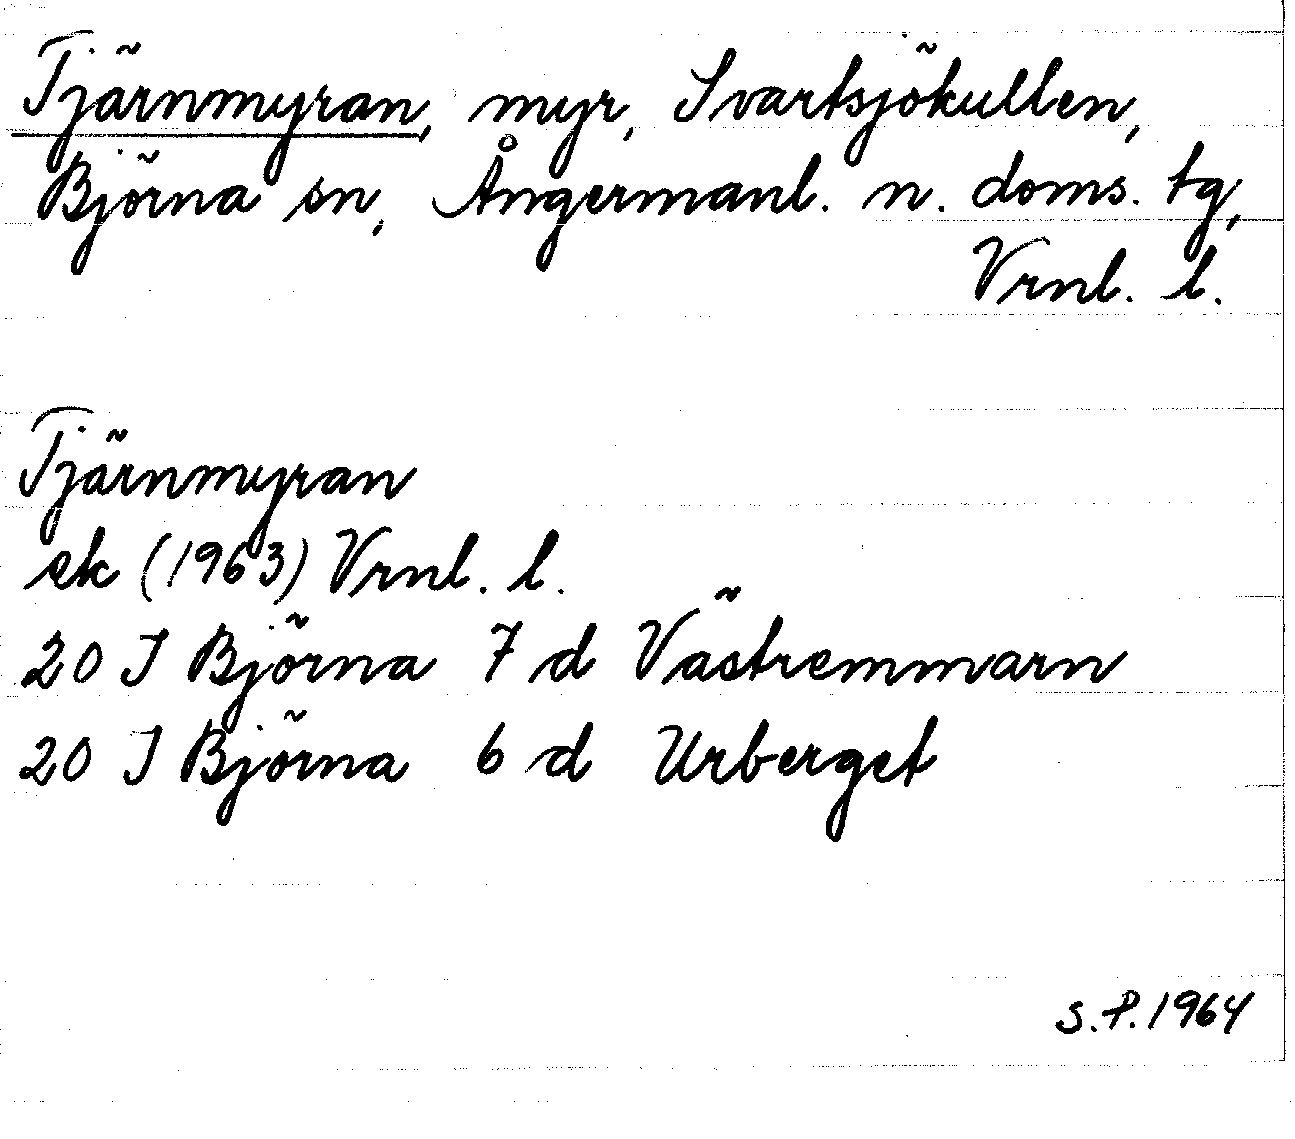 Tjärnmyran, myr, Svartsjökullen,
Björna sn, Ångermanl. n. doms. tg,
Vrnl. l.
Tjärnmyran
ek (1963) Vrnl. l.
20 I Björna 7 d Västremmarn
20 I Björna 6 d Urberget
S.P. 1964